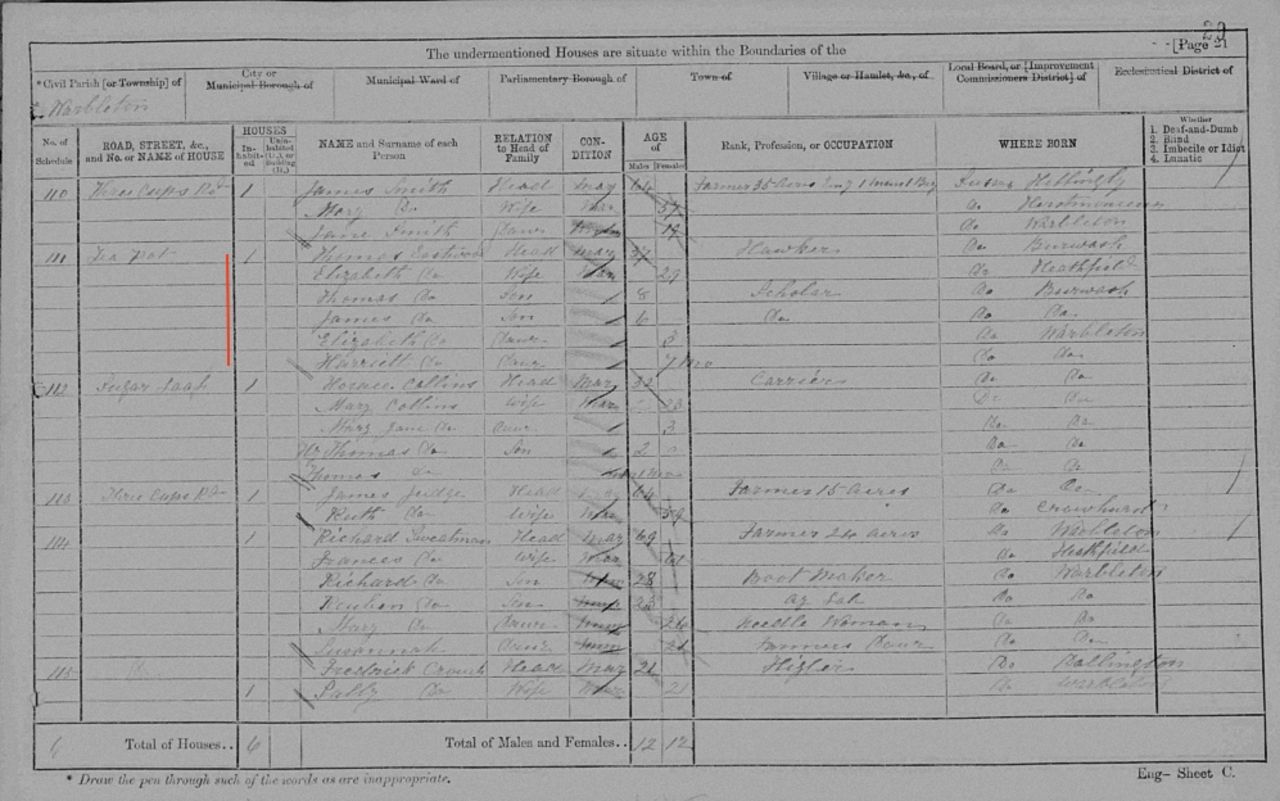 23
[Page 21
The undermentioned Houses are situate within the Boundaries of the
*Civil Parish [or Township] of
City or Municipal Borough of
Municipal Ward of
Parliamentary Borough of
Town of
Village or Hamlet, &c., of
Local Board, or [Improvement Commissioners District] of
Ecclesiastical District of
Warbleton
No. of Schedule
ROAD, STREET, &c., and No. or NAME of HOUSE
HOUSES
In-habit-ed
Unin-habited (U.), or Building (B.)
NAME and Surname of each Person
RELATION to Head of Family
CON-DITION
AGE of
Males
Females
Rank, Profession, or OCCUPATION
WHERE BORN
Whether
1. Deaf-and-Dumb
2. Blind
3. Imbecile or Idiot
4. Lunatic
110 Three Cups Rd 1 James Smith Head Mar 64 Farmer 35 Acres Sussex Hellingly
Mary Do Wife Mar 57 Do Herstmonceux
Jane Smith Daur 19 Do Warbleton
111 Tea pot 1 Thomas Eastwood Head Mar 37 Hawker Do Burwash
Elizabeth Do Wife Mar 29 Do Heathfield
Thomas Do Son 8 Scholar Do Burwash
James Do Son 6 Do Do Do
Elizabeth Do Daur 3 Do Warbleton
Harriett Do Daur 7 mo Do Do
112 Sugar Loaf 1 Horace Collins Head Mar 32 Carrier Do Do
Mary Collins Wife Mar 23 Do Do
Mary Jane Do Daur 3 Do Do
Thomas Do Son 2 Do Do
Thomas Do Do Do
113 Three Cups Rd 1 James Judge Head Mar 64 Farmer 15 Acres Do Do
Ruth Do Wife Mar 59 Do Crowhurst
114 1 Richard Sweatman Head Mar 69 Farmer 24 Acres Do Warbleton
Frances Do Wife Mar 61 Do Heathfield
Richard Do Son Unm 28 Boot Maker Do Warbleton
Reuben Do Son Unm 23 Ag Lab Do Do
Mary Do Daur Unm 26 Needle Woman Do Do
Susannah Daur Unm 21 Farmers Daur Do Do
115 Frederick Crouch Head Mar 21 Higler Do Dallington
1 Sally Do Wife Mar 21 Do Warbleton
6 Total of Houses.. 6 Total of Males and Females.. 12 12
* Draw the pen through such of the words as are inappropriate.
Eng- Sheet C.